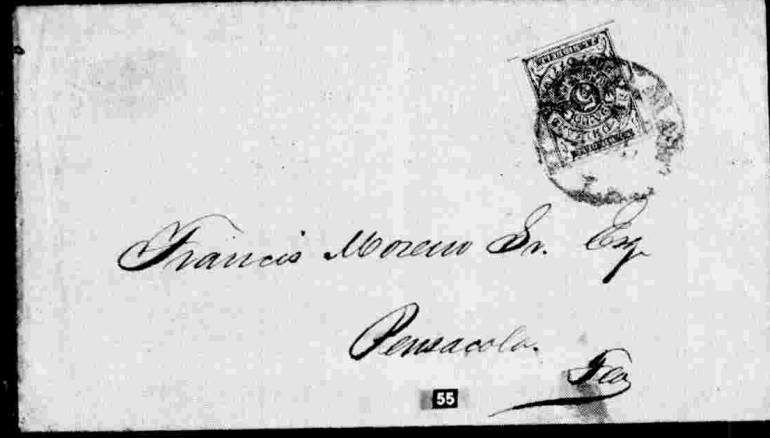 5
Francis Moreno Sr. Esq
Pensacola.
Fla
55